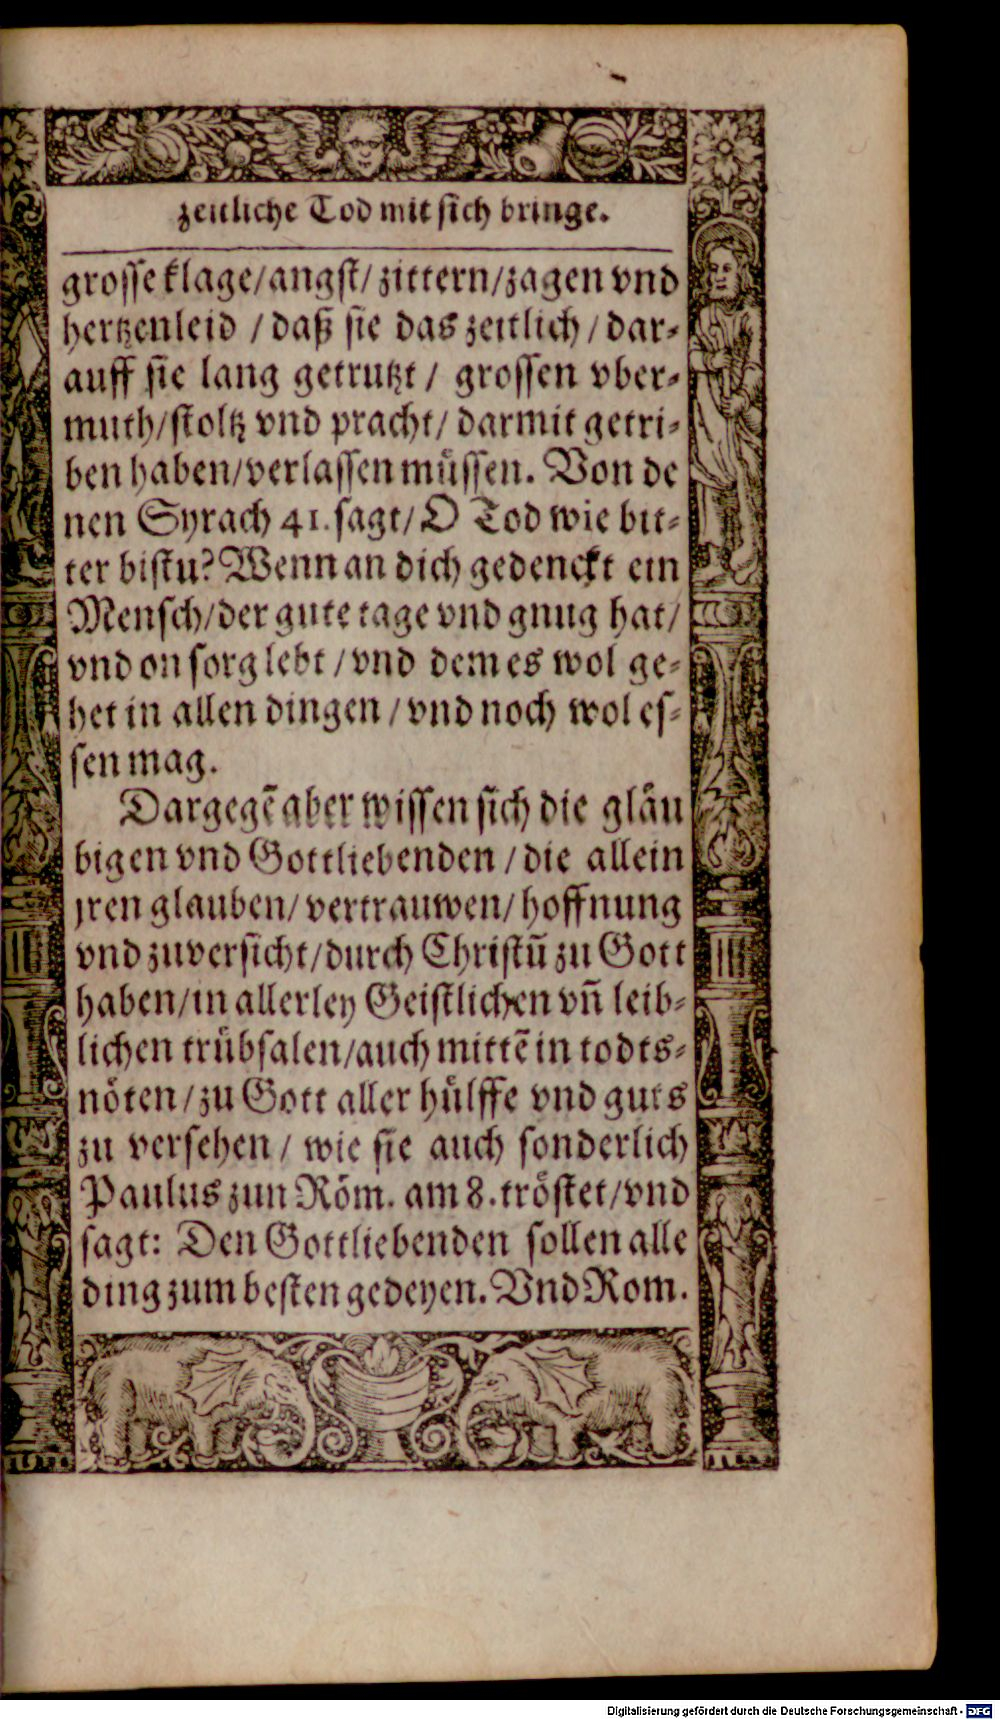 zeitliche Tod mit sich bringe.
grosse klage/angst/zittern/zagen vnd
hertzenleid /daß sie das zeitlich/dar⸗
auff sie lang getrutzt/ grossen vber⸗
muth/stoltz vnd pracht/darmit getri⸗
ben haben/verlassen muͤssen. Von de
nen Syrach 41.sagt/O Tod wie bit⸗
ter bistu? Wenn an dich gedenckt ein
Mensch/der gute tage vnd gnug hat/
vnd on sorg lebt/vnd dem es wol ge⸗
het in allen dingen/vnd noch wol es⸗
sen mag.
Dargegẽ aber wissen sich die glaͤu
bigen vnd Gottliebenden/die allein
jren glauben/vertrauwen/hoffnung
vnd zuversicht/durch Christũ zu Gott
haben/in allerley Geistlichen vñ leib⸗
lichen truͤbsalen/auch mittẽ in todts⸗
noͤten/zu Gott aller huͤlffe vnd guts
zu versehen/ wie sie auch sonderlich
Paulus zun Roͤm. am 8.troͤstet/vnd
sagt: Den Gottliebenden sollen alle
ding zum besten gedeyen. Vnd Rom.
Digitalisierung gefördert durch die Deutsche Forschungsgemeinschaft - DFG